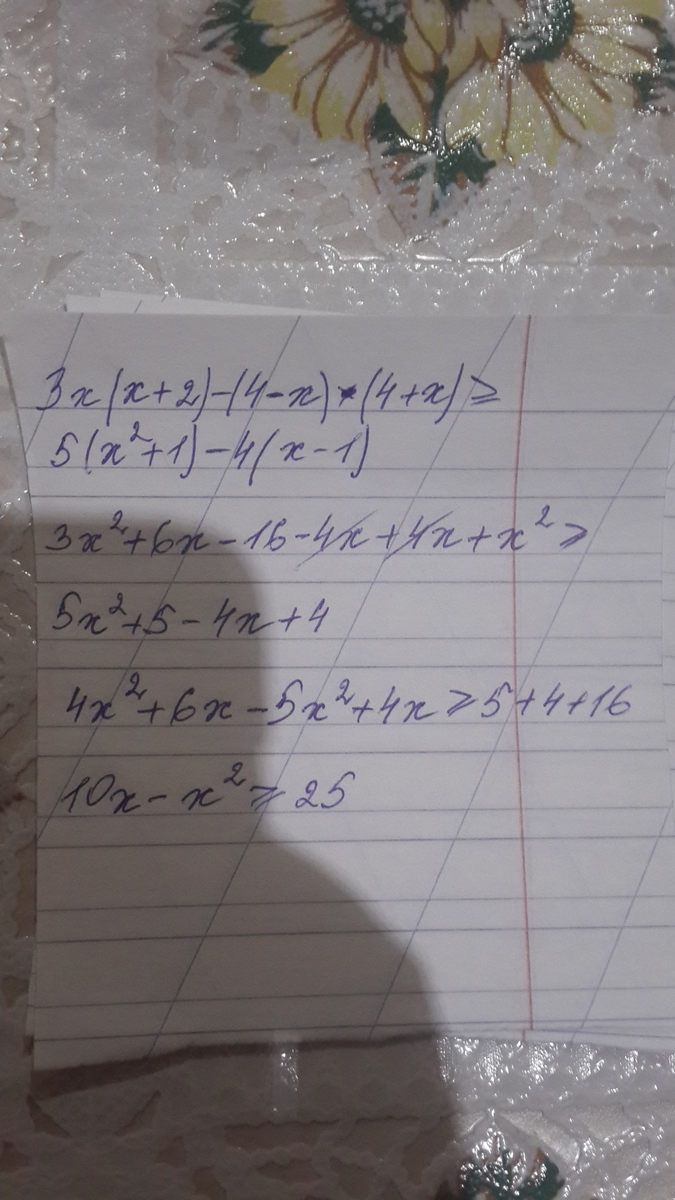 3x(x+2)-(4-x)•(4+x)≥
5(x²+1)-4(x-1)
3x²+6x-16-4x+4x+x²≥
5x²+5-4x+4
4x²+6x-5x²+4x≥5+4+16
10x-x²≥25